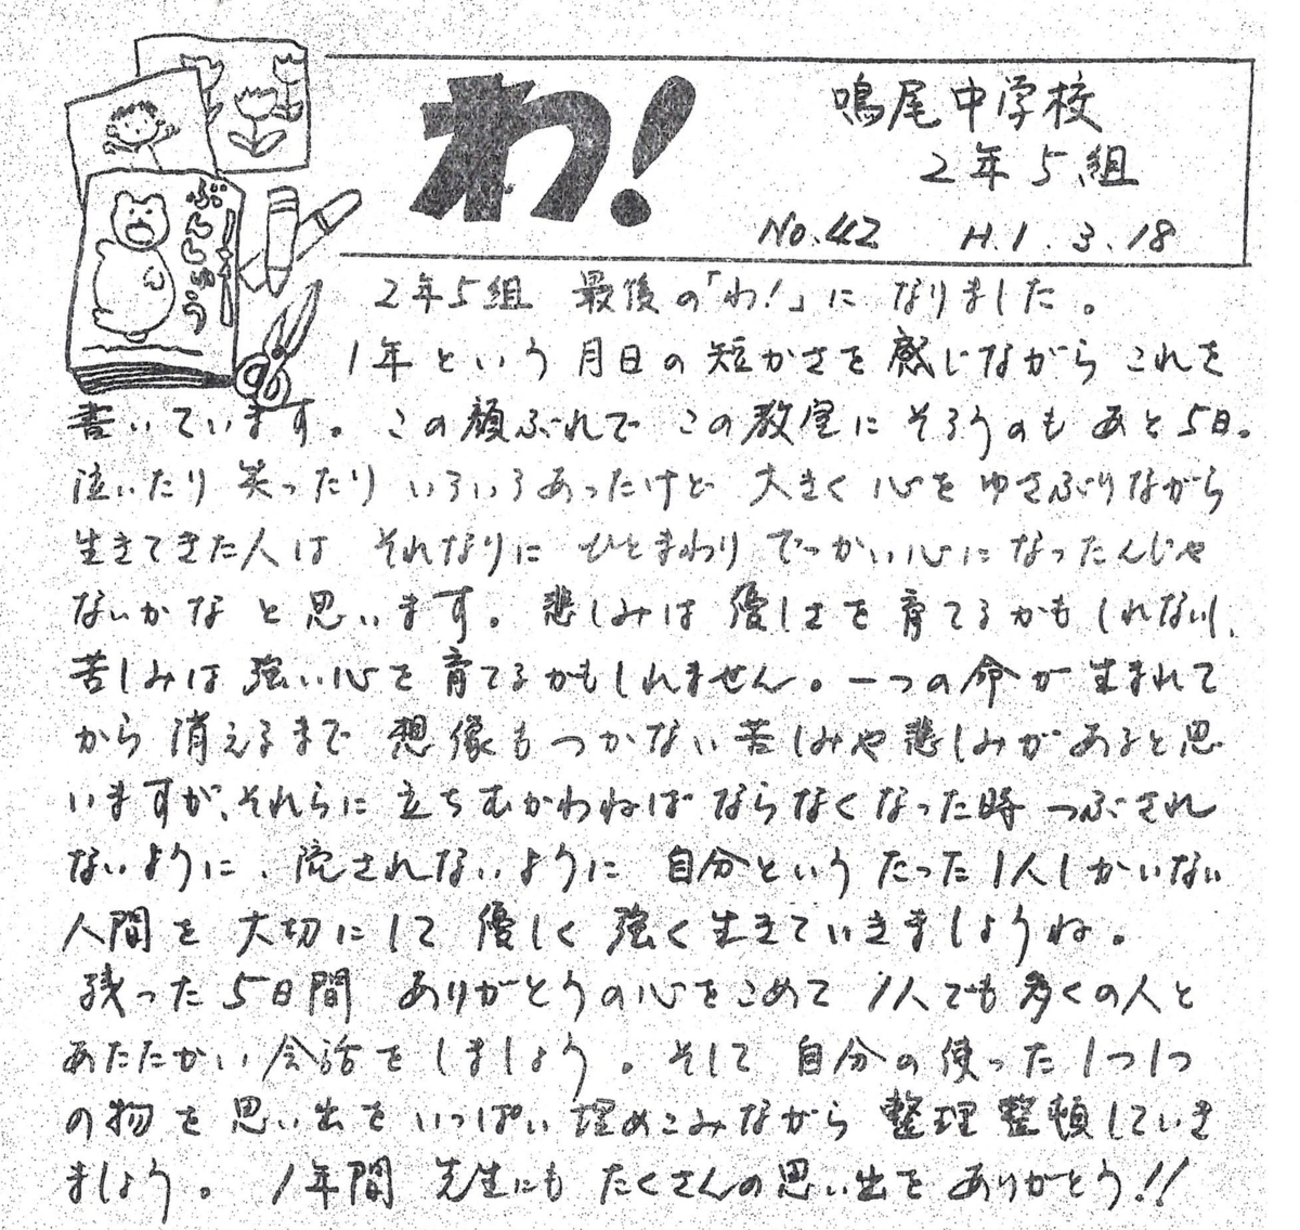 わ!
鳴尾中学校
2年5組
No.42 H.1.3.18
ぶんしゅう
2年5組 最後の「わ!」に なりました。
1年という月日の短かさを感じながらこれを
書いています。この顔ぶれで この教室にそろうのも あと5日。
泣いたり 笑ったり いろいろあったけど 大きく心をゆさぶりながら
生きてきた人は それなりに ひとまわり でっかい心になったんじゃ
ないかな と思います。悲しみは 優しさを育てるかもしれないし、
苦しみは強い心を育てるかもしれません。一つの命が生まれて
から消えるまで 想像もつかない苦しみや悲しみがあると思
いますが、それらに立ちむかわねばならなくなった時 つぶされ
ないように、流されないように 自分という たった1人しかいない
人間を大切にして 優しく強く生きていきましょうね。
残った5日間 ありがとうの心をこめて 1人でも多くの人と
あたたかい会話をしましょう。そして 自分の使った1つ1つ
の物を思い出をいっぱい埋めこみながら整理整頓していき
ましょう。 1年間 先生にも たくさんの思い出を ありがとう!!